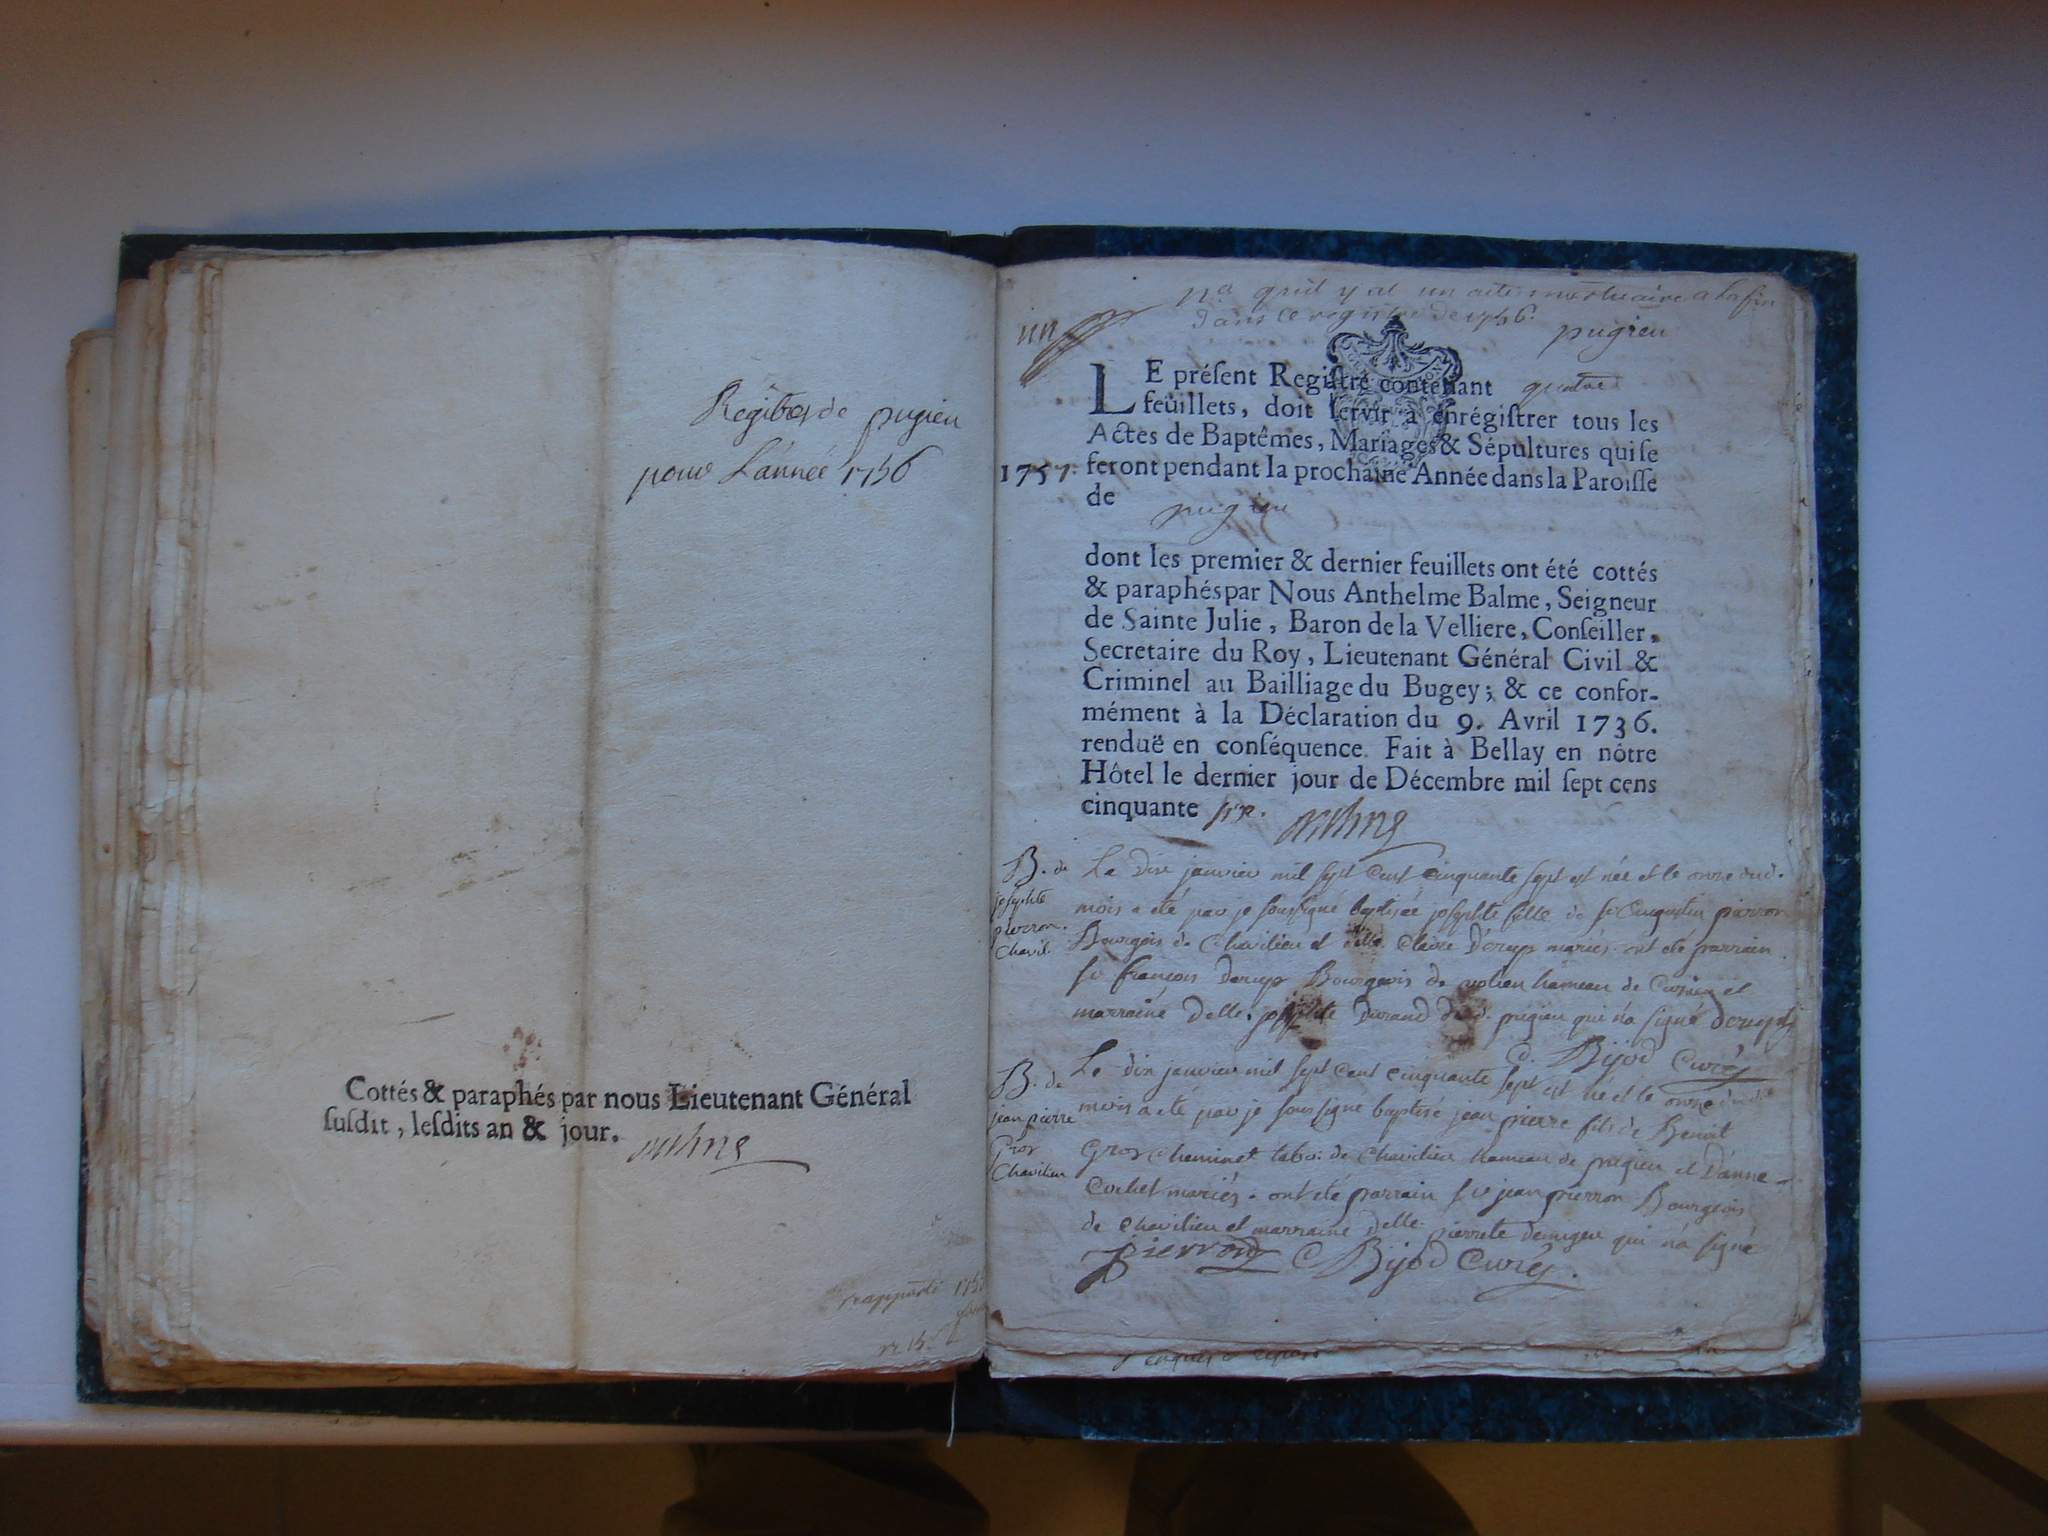 Regitres de pugieu
pour L'année 1756
Cottés & paraphés par nous Lieutenant Général
susdit, lesdits an & jour.
rapporté
na qu'il y at un acte mortuaire a la fin
dans ce registre de 1756.
un
pugieu
LE présent Registre contenant quatre
feüillets, doit servir à enrégistrer tous les
Actes de Baptêmes, Mariages & Sépultures qui se
1757. feront pendant la prochaine Année dans la Paroisse
de pugieu
dont les premier & dernier feuillets ont été cottés
& paraphés par Nous Anthelme Balme, Seigneur
de Sainte Julie, Baron de la Velliere, Conseiller,
Secretaire du Roy, Lieutenant Général Civil &
Criminel au Bailliage du Bugey; & ce confor-
mément à la Déclaration du 9. Avril 1736.
renduë en conséquence. Fait à Bellay en nôtre
Hôtel le dernier jour de Décembre mil sept cens
cinquante six.
B. de
josephte
pierron.
Chavil.
Le dix janvier mil sept cent cinquante sept est née et le onze dud.
mois a été par je soussigné baptisée josephte fille de sr augustin pierron
Bourgeois de Chavilieu et delle Claire Derup mariés. ont été parrain
sr françois Derup Bourgeois de hameau de et
marraine Delle. josephte Durand dud. pugieu qui n'a signé Derupt
C. Bijod Curé
B. de
jean pierre
Gros
Chavilieu
Le dix janvier mil sept cent cinquante sept est né et le onze dud.
mois a été par je soussigné baptisé jean pierre fils de Benoit
Gros Cheminet labo: de Chavilieu hameau de pugieu et D'anne
Cochet mariés. ont été parrain sr jean pierron Bourgeois
de Chavilieu et marraine delle pierrete qui n'a signé
pierron C Bijod Curé.